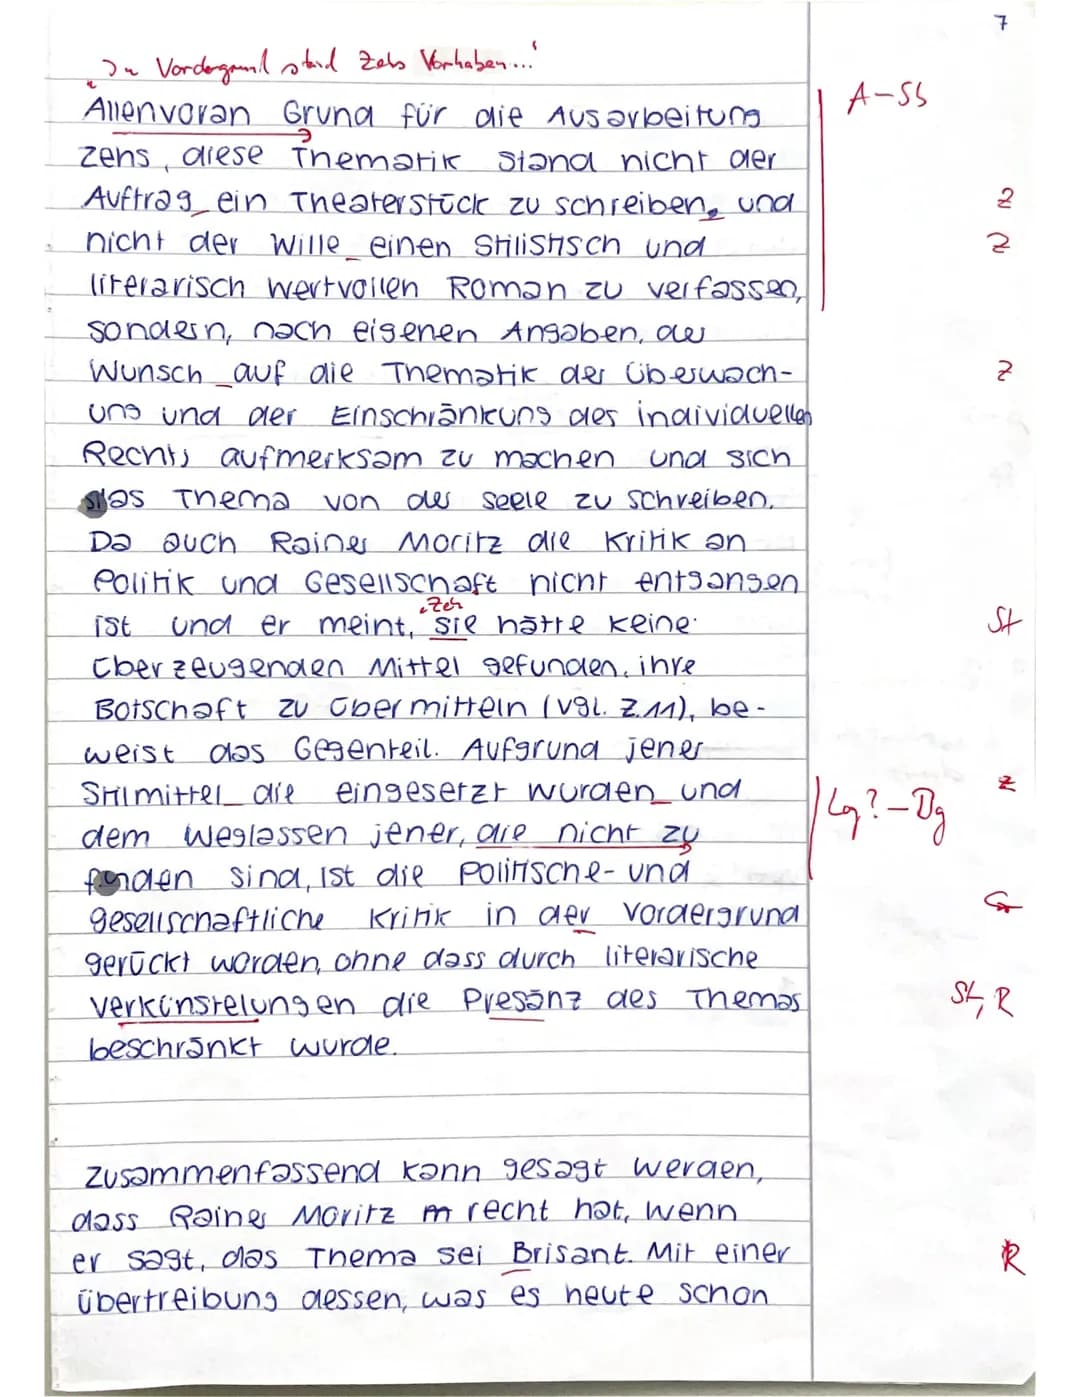 7
„Im Vordergrund stand Zehs Vorhaben..."
A-SS
Allenvoran Grund für die Ausarbeitung
Zehs, diese Thematik stand nicht der
Auftrag ein Theaterstück zu schreiben, und
Z
nicht der Wille einen stilistisch und
Z
literarisch wertvollen Roman zu verfassen,
sondern, nach eigenen Angaben, der
Wunsch auf die Thematik der Überwach-
Z
ung und der Einschränkung des individuellen
Rechts aufmerksam zu machen und sich
das Thema von der Seele zu schreiben.
Da auch Rainer Moritz die Kritik an
Politik und Gesellschaft nicht entgangen
Zeh
ist und er meint, sie hätte keine
St
überzeugenden Mittel gefunden, ihre
Botschaft zu übermitteln (vgl. Z.11), be-
weist das Gegenteil. Aufgrund jener
Stilmittel die eingesetzt wurden und
Z
Log?-Dg
dem Weglassen jener, die nicht zu
finden sind, ist die politische- und
gesellschaftliche Kritik in der Vordergrund
G
gerückt worden, ohne dass durch literarische
Verkünstelungen die Presänz des Themas
St, R
beschränkt wurde.
Zusammenfassend kann gesagt werden,
dass Rainer Moritz recht hat, wenn
er sagt, das Thema sei Brisant. Mit einer
R
übertreibung dessen, was es heute schon